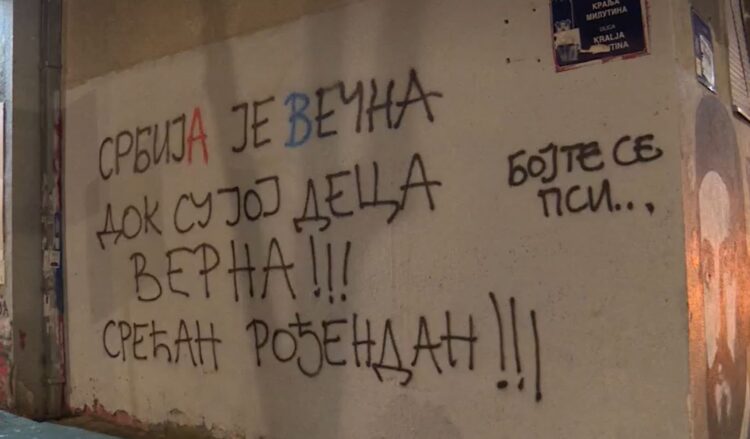 СРБИЈА ЈЕ ВЕЧНА
ДОК СУ ЈОЈ ДЕЦА
ВЕРНА!!!
СРЕЋАН РОЂЕНДАН!!!
БОЈТЕ СЕ
ПСИ...
КРАЉА
МИЛУТИНА
KRALJA